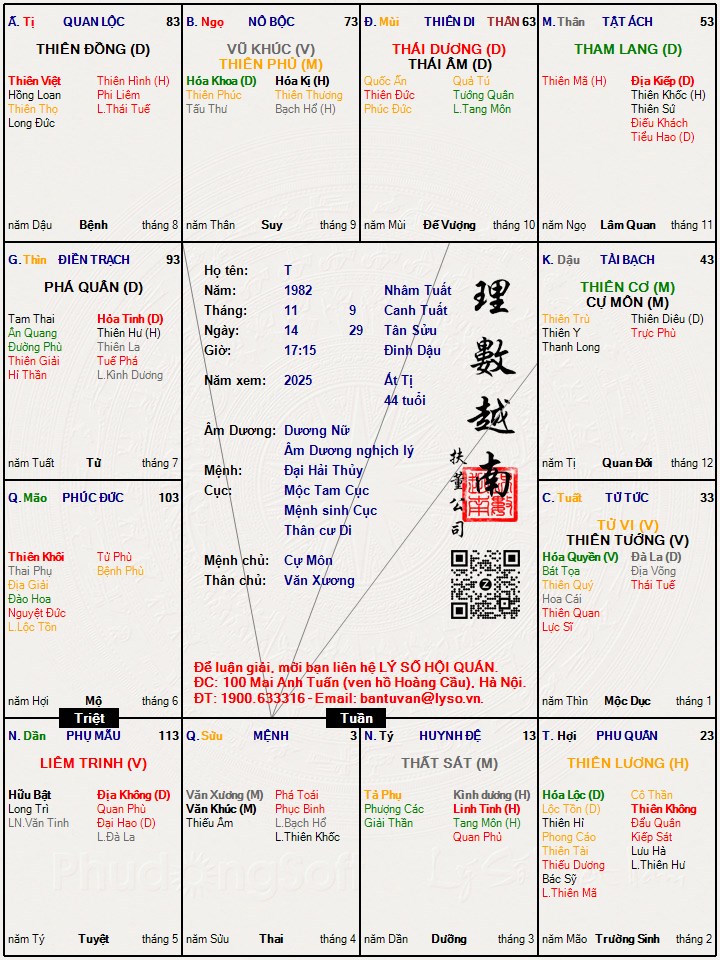 Ấ. Tị QUAN LỘC 83
THIÊN ĐỒNG (D)
Thiên Việt Thiên Hình (H)
Hồng Loan Phi Liêm
Thiên Thọ L.Thái Tuế
Long Đức
năm Dậu Bệnh tháng 8
B. Ngọ NÔ BỘC 73
VŨ KHÚC (V)
THIÊN PHỦ (M)
Hóa Khoa (D) Hóa Kị (H)
Thiên Phúc Thiên Thương
Tấu Thư Bạch Hổ (H)
năm Thân Suy tháng 9
Đ. Mùi THIÊN DI THÂN 63
THÁI DƯƠNG (D)
THÁI ÂM (D)
Quốc Ấn Quả Tú
Thiên Đức Tướng Quân
Phúc Đức L.Tang Môn
năm Mùi Đế Vượng tháng 10
M. Thân TẬT ÁCH 53
THAM LANG (D)
Thiên Mã (H) Địa Kiếp (D)
Thiên Khốc (H)
Thiên Sứ
Điếu Khách
Tiểu Hao (D)
năm Ngọ Lâm Quan tháng 11
G. Thìn ĐIỀN TRẠCH 93
PHÁ QUÂN (D)
Tam Thai Hỏa Tinh (D)
Ân Quang Thiên Hư (H)
Đường Phù Thiên La
Thiên Giải Tuế Phá
Hỉ Thần L.Kình Dương
năm Tuất Tử tháng 7
Họ tên: T
Năm: 1982 Nhâm Tuất
Tháng: 11 9 Canh Tuất
Ngày: 14 29 Tân Sửu
Giờ: 17:15 Đinh Dậu
Năm xem: 2025 Ất Tị
44 tuổi
Âm Dương: Dương Nữ
Âm Dương nghịch lý
Mệnh: Đại Hải Thủy
Cục: Mộc Tam Cục
Mệnh sinh Cục
Thân cư Di
Mệnh chủ: Cự Môn
Thân chủ: Văn Xương
理數越南
扶董公司
Để luận giải, mời bạn liên hệ LÝ SỐ HỘI QUÁN.
ĐC: 100 Mai Anh Tuấn (ven hồ Hoàng Cầu), Hà Nội.
ĐT: 1900.633316 - Email: bantuvan@lyso.vn.
K. Dậu TÀI BẠCH 43
THIÊN CƠ (M)
CỰ MÔN (M)
Thiên Trù Thiên Diêu (D)
Thiên Y Trực Phù
Thanh Long
năm Tị Quan Đới tháng 12
Q. Mão PHÚC ĐỨC 103
Thiên Khôi Tử Phù
Thai Phụ Bệnh Phù
Địa Giải
Đào Hoa
Nguyệt Đức
L.Lộc Tồn
năm Hợi Mộ tháng 6
C. Tuất TỬ TỨC 33
TỬ VI (V)
THIÊN TƯỚNG (V)
Hóa Quyền (V) Đà La (D)
Bát Tọa Địa Võng
Thiên Quý Thái Tuế
Hoa Cái
Thiên Quan
Lực Sĩ
năm Thìn Mộc Dục tháng 1
Triệt
Tuần
N. Dần PHỤ MẪU 113
LIÊM TRINH (V)
Hữu Bật Địa Không (D)
Long Trì Quan Phù
LN.Văn Tinh Đại Hao (D)
L.Đà La
năm Tý Tuyệt tháng 5
Q. Sửu MỆNH 3
Văn Xương (M) Phá Toái
Văn Khúc (M) Phục Binh
Thiếu Âm L.Bạch Hổ
L.Thiên Khốc
năm Sửu Thai tháng 4
N. Tý HUYNH ĐỆ 13
THẤT SÁT (M)
Tả Phụ Kình dương (H)
Phượng Các Linh Tinh (H)
Giải Thần Tang Môn (H)
Quan Phủ
năm Dần Dưỡng tháng 3
T. Hợi PHU QUÂN 23
THIÊN LƯƠNG (H)
Hóa Lộc (D) Cô Thần
Lộc Tồn (D) Thiên Không
Thiên Hỉ Đẩu Quân
Phong Cáo Kiếp Sát
Thiên Tài Lưu Hà
Thiếu Dương L.Thiên Hư
Bác Sỹ
L.Thiên Mã
năm Mão Trường Sinh tháng 2